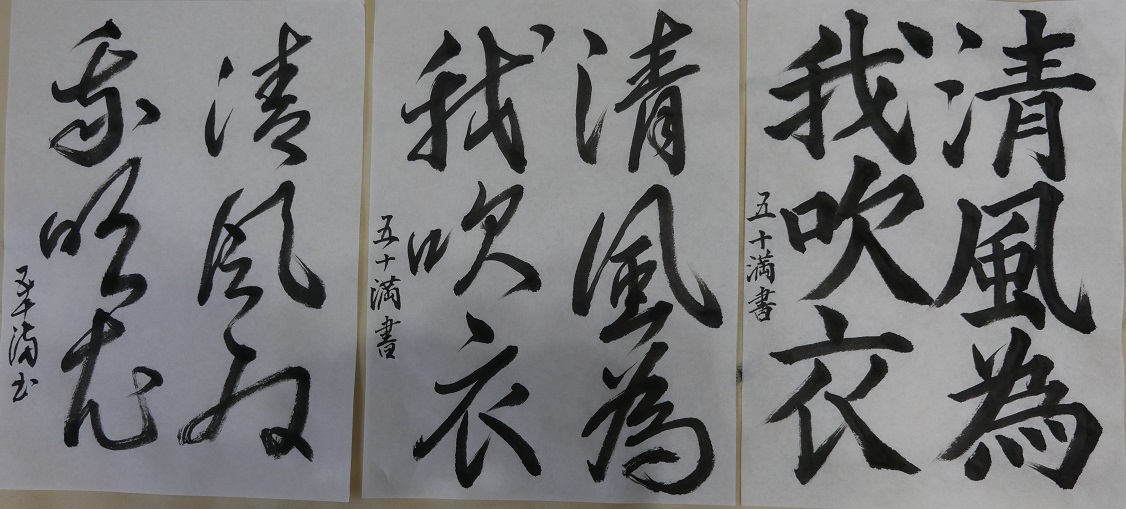 清風為
我吹衣
五十満書
清風為
我吹衣
五十満書
清風為
我吹衣
五十満書